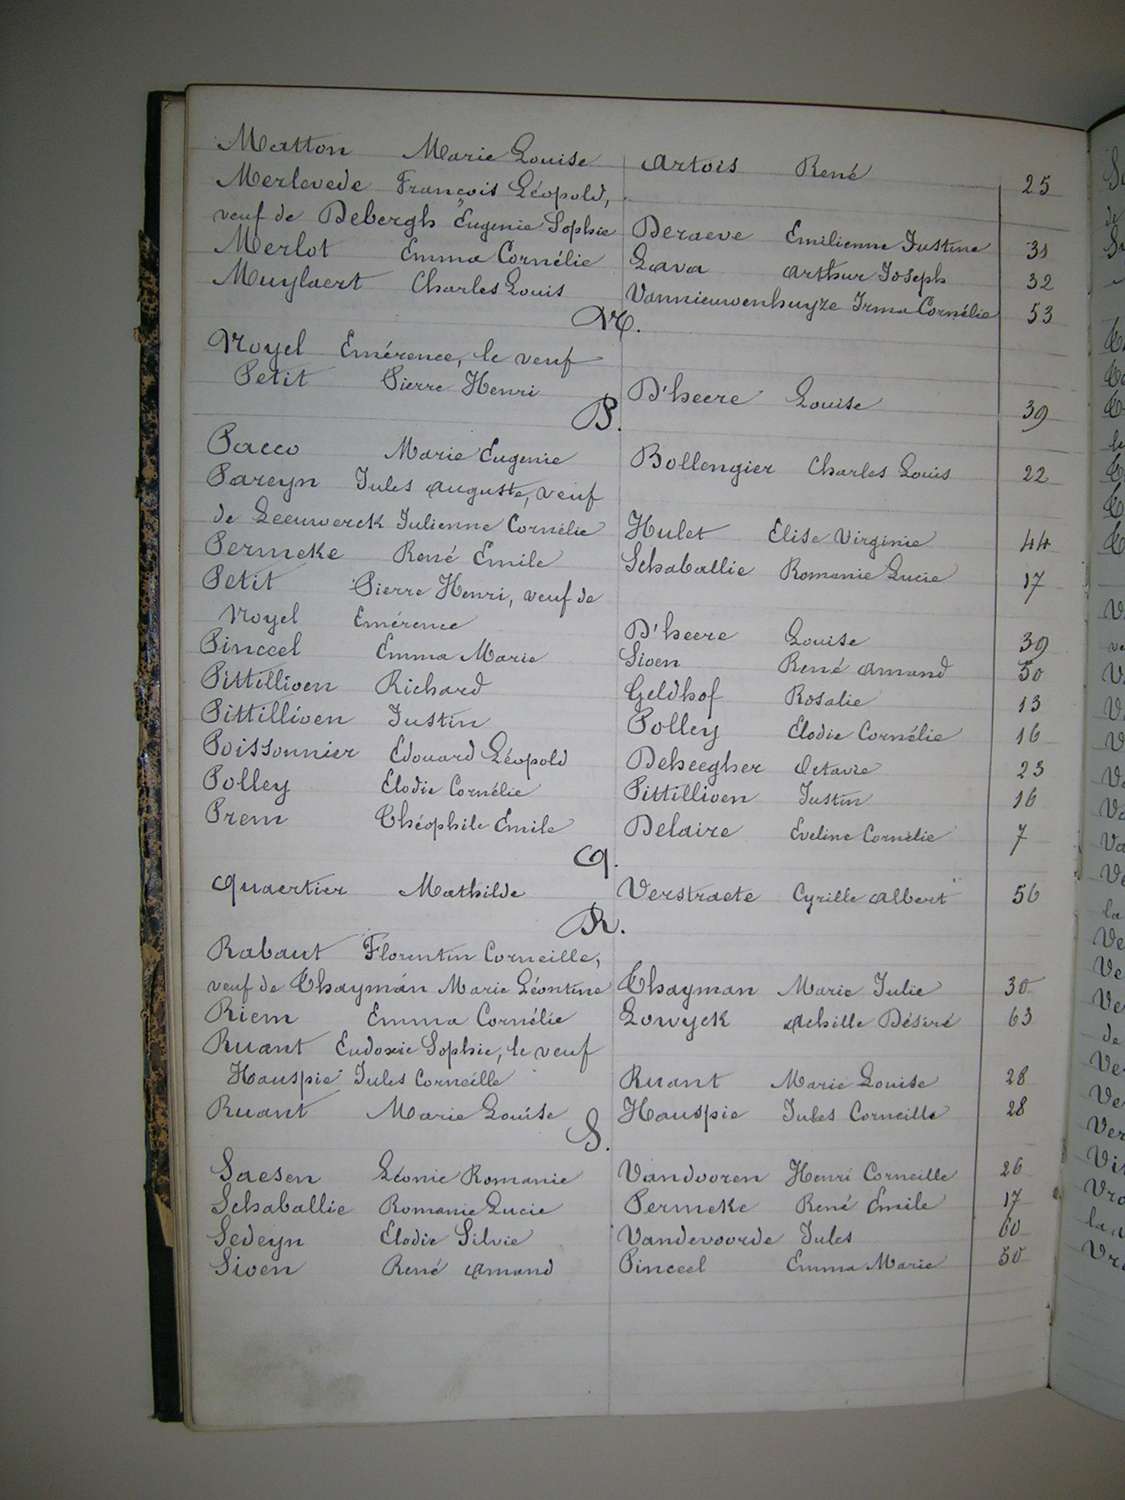 Matton Marie Louise Artois René 25
Merlevede François Léopold,
veuf de Debergh Eugenie Sophie Deraeve Emilienne Justine 31
Merlot Emma Cornélie Lava Arthur Joseph 32
Muylaert Charles Louis Vannieuwenhuyze Irma Cornélie 53
N.
Noyel Emérence, le veuf
Petit Pierre Henri D'heere Louise 39
P.
Pacco Marie Eugenie Bollengier Charles Louis 22
Pareyn Jules Auguste, veuf
de Leeuwerck Julienne Cornélie Hulet Elise Virginie 44
Permeke René Emile Schaballie Romanie Lucie 17
Petit Pierre Henri, veuf de
Noyel Emérence D'heere Louise 39
Pinceel Emma Marie Sioen René Amand 50
Pittillioen Richard Geldhof Rosalie 13
Pittillioen Justin Polley Elodie Cornélie 16
Poissonnier Edouard Léopold Deheegher Octavie 23
Polley Elodie Cornélie Pittillioen Justin 16
Prem Théophile Emile Delaire Eveline Cornélie 7
Q.
Quaertier Mathilde Verstraete Cyrille Albert 56
R.
Rabaut Florentin Corneille,
veuf de Thayman Marie Léontine Thayman Marie Julie 30
Riem Emma Cornélie Lowyck Achille Désiré 63
Ruant Eudoxie Sophie, le veuf
Hauspie Jules Corneille Ruant Marie Louise 28
Ruant Marie Louise Hauspie Jules Corneille 28
S.
Saesen Léonie Romanie Vandooren Henri Corneille 26
Schaballie Romanie Lucie Permeke René Emile 17
Sedeyn Elodie Silvie Vandevoorde Jules 60
Sioen René Amand Pinceel Emma Marie 50